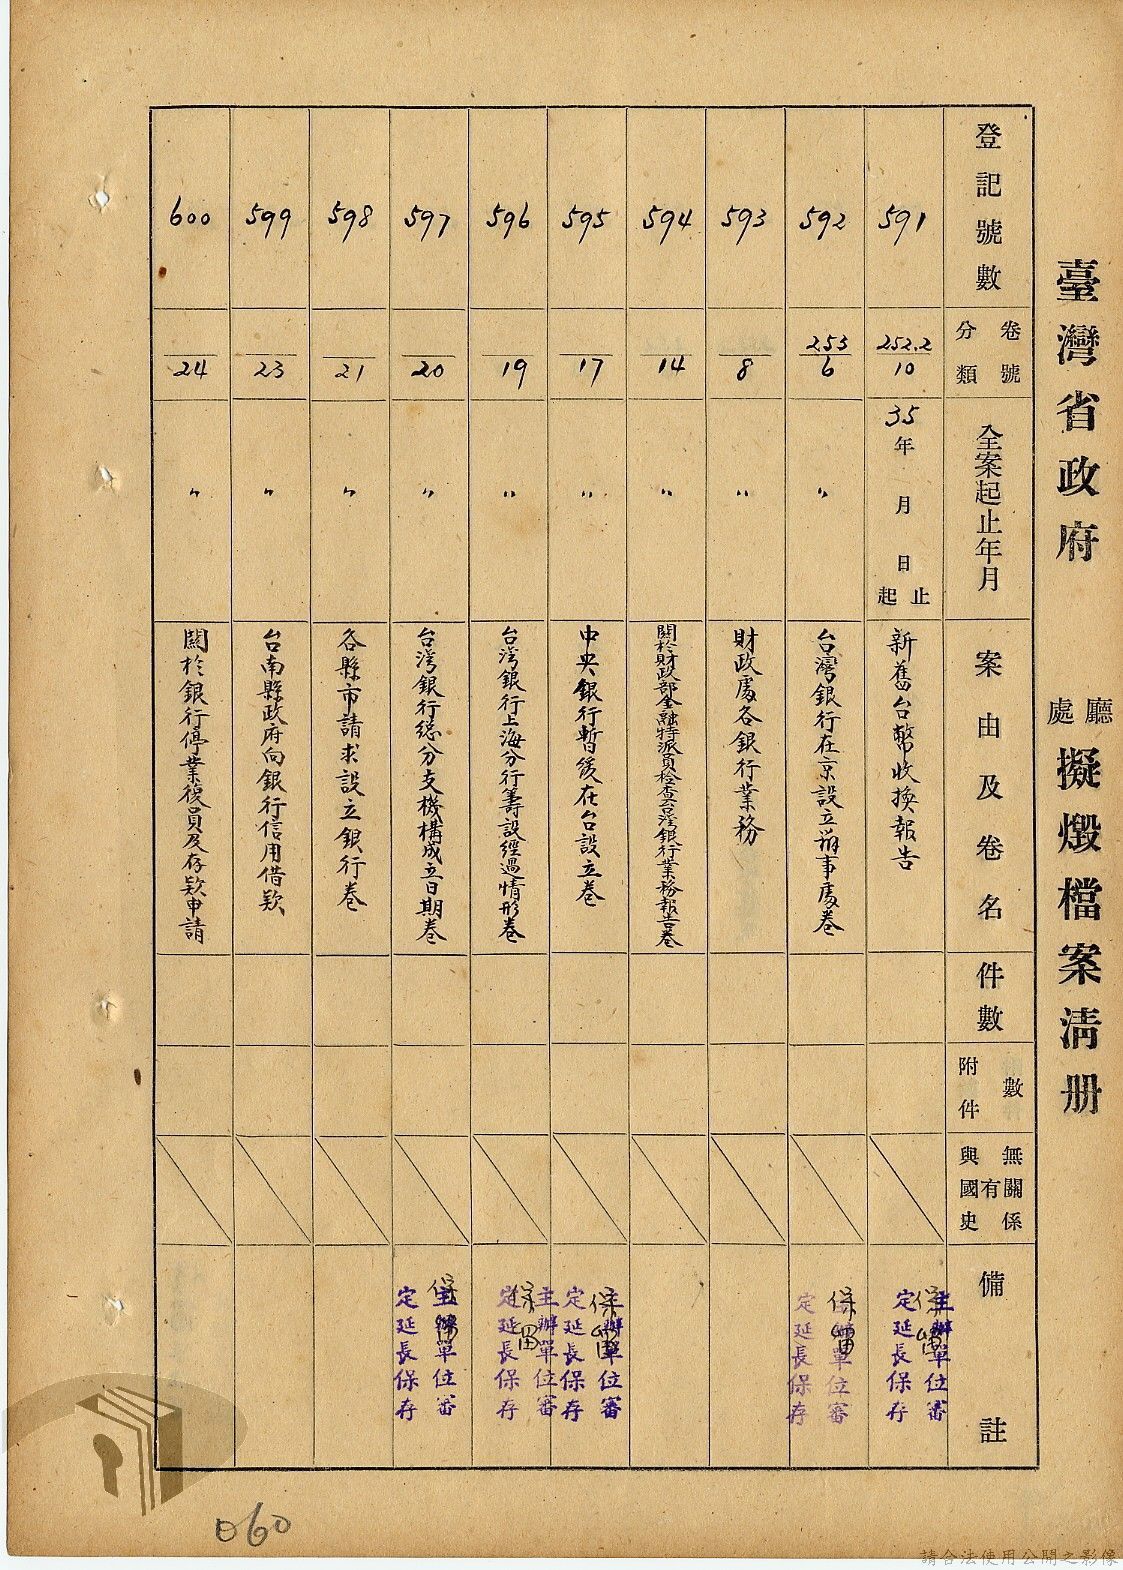 臺灣省政府 廳處 擬燬檔案清册
登記號數
卷號
分類
全案起止年月
案由及卷名
件數
附件數
與國史有無關係
備註
591
252.2
10
35年 月 日 起止
新舊台幣收換報告
保留
主辦單位審
定延長保存
592
253
6
〃
台灣銀行在京設立辦事處卷
保留
主辦單位審
定延長保存
593
8
〃
財政處各銀行業務
594
14
〃
關於財政部金融特派員檢查台灣銀行業務報告卷
595
17
〃
中央銀行暫緩在台設立卷
保留
主辦單位審
定延長保存
596
19
〃
台灣銀行上海分行籌設經過情形卷
保留
主辦單位審
定延長保存
597
20
〃
台灣銀行總分支機構成立日期卷
保留
主辦單位審
定延長保存
598
21
〃
各縣市請求設立銀行卷
599
23
〃
台南縣政府向銀行信用借欵
600
24
〃
關於銀行停業復員及存欵申請
060
請合法使用公開之影像